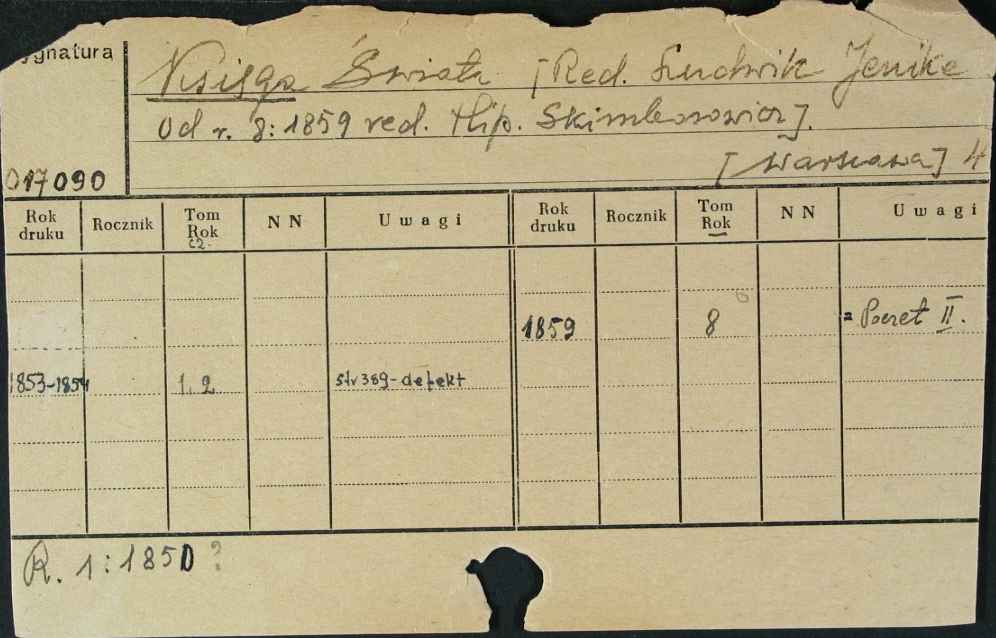 ygnatura
Księga Świata [Red. Ludwik Jenike
Od r. 8: 1859 red. Hip. Skimborowicz].
[Warszawa] 4
017090
Rok druku Rocznik Tom Rok cz. NN Uwagi Rok druku Rocznik Tom Rok NN Uwagi
1859 8 = Poszet II.
1853-1854 1. 2 str 389-defekt
R. 1: 1850 ?